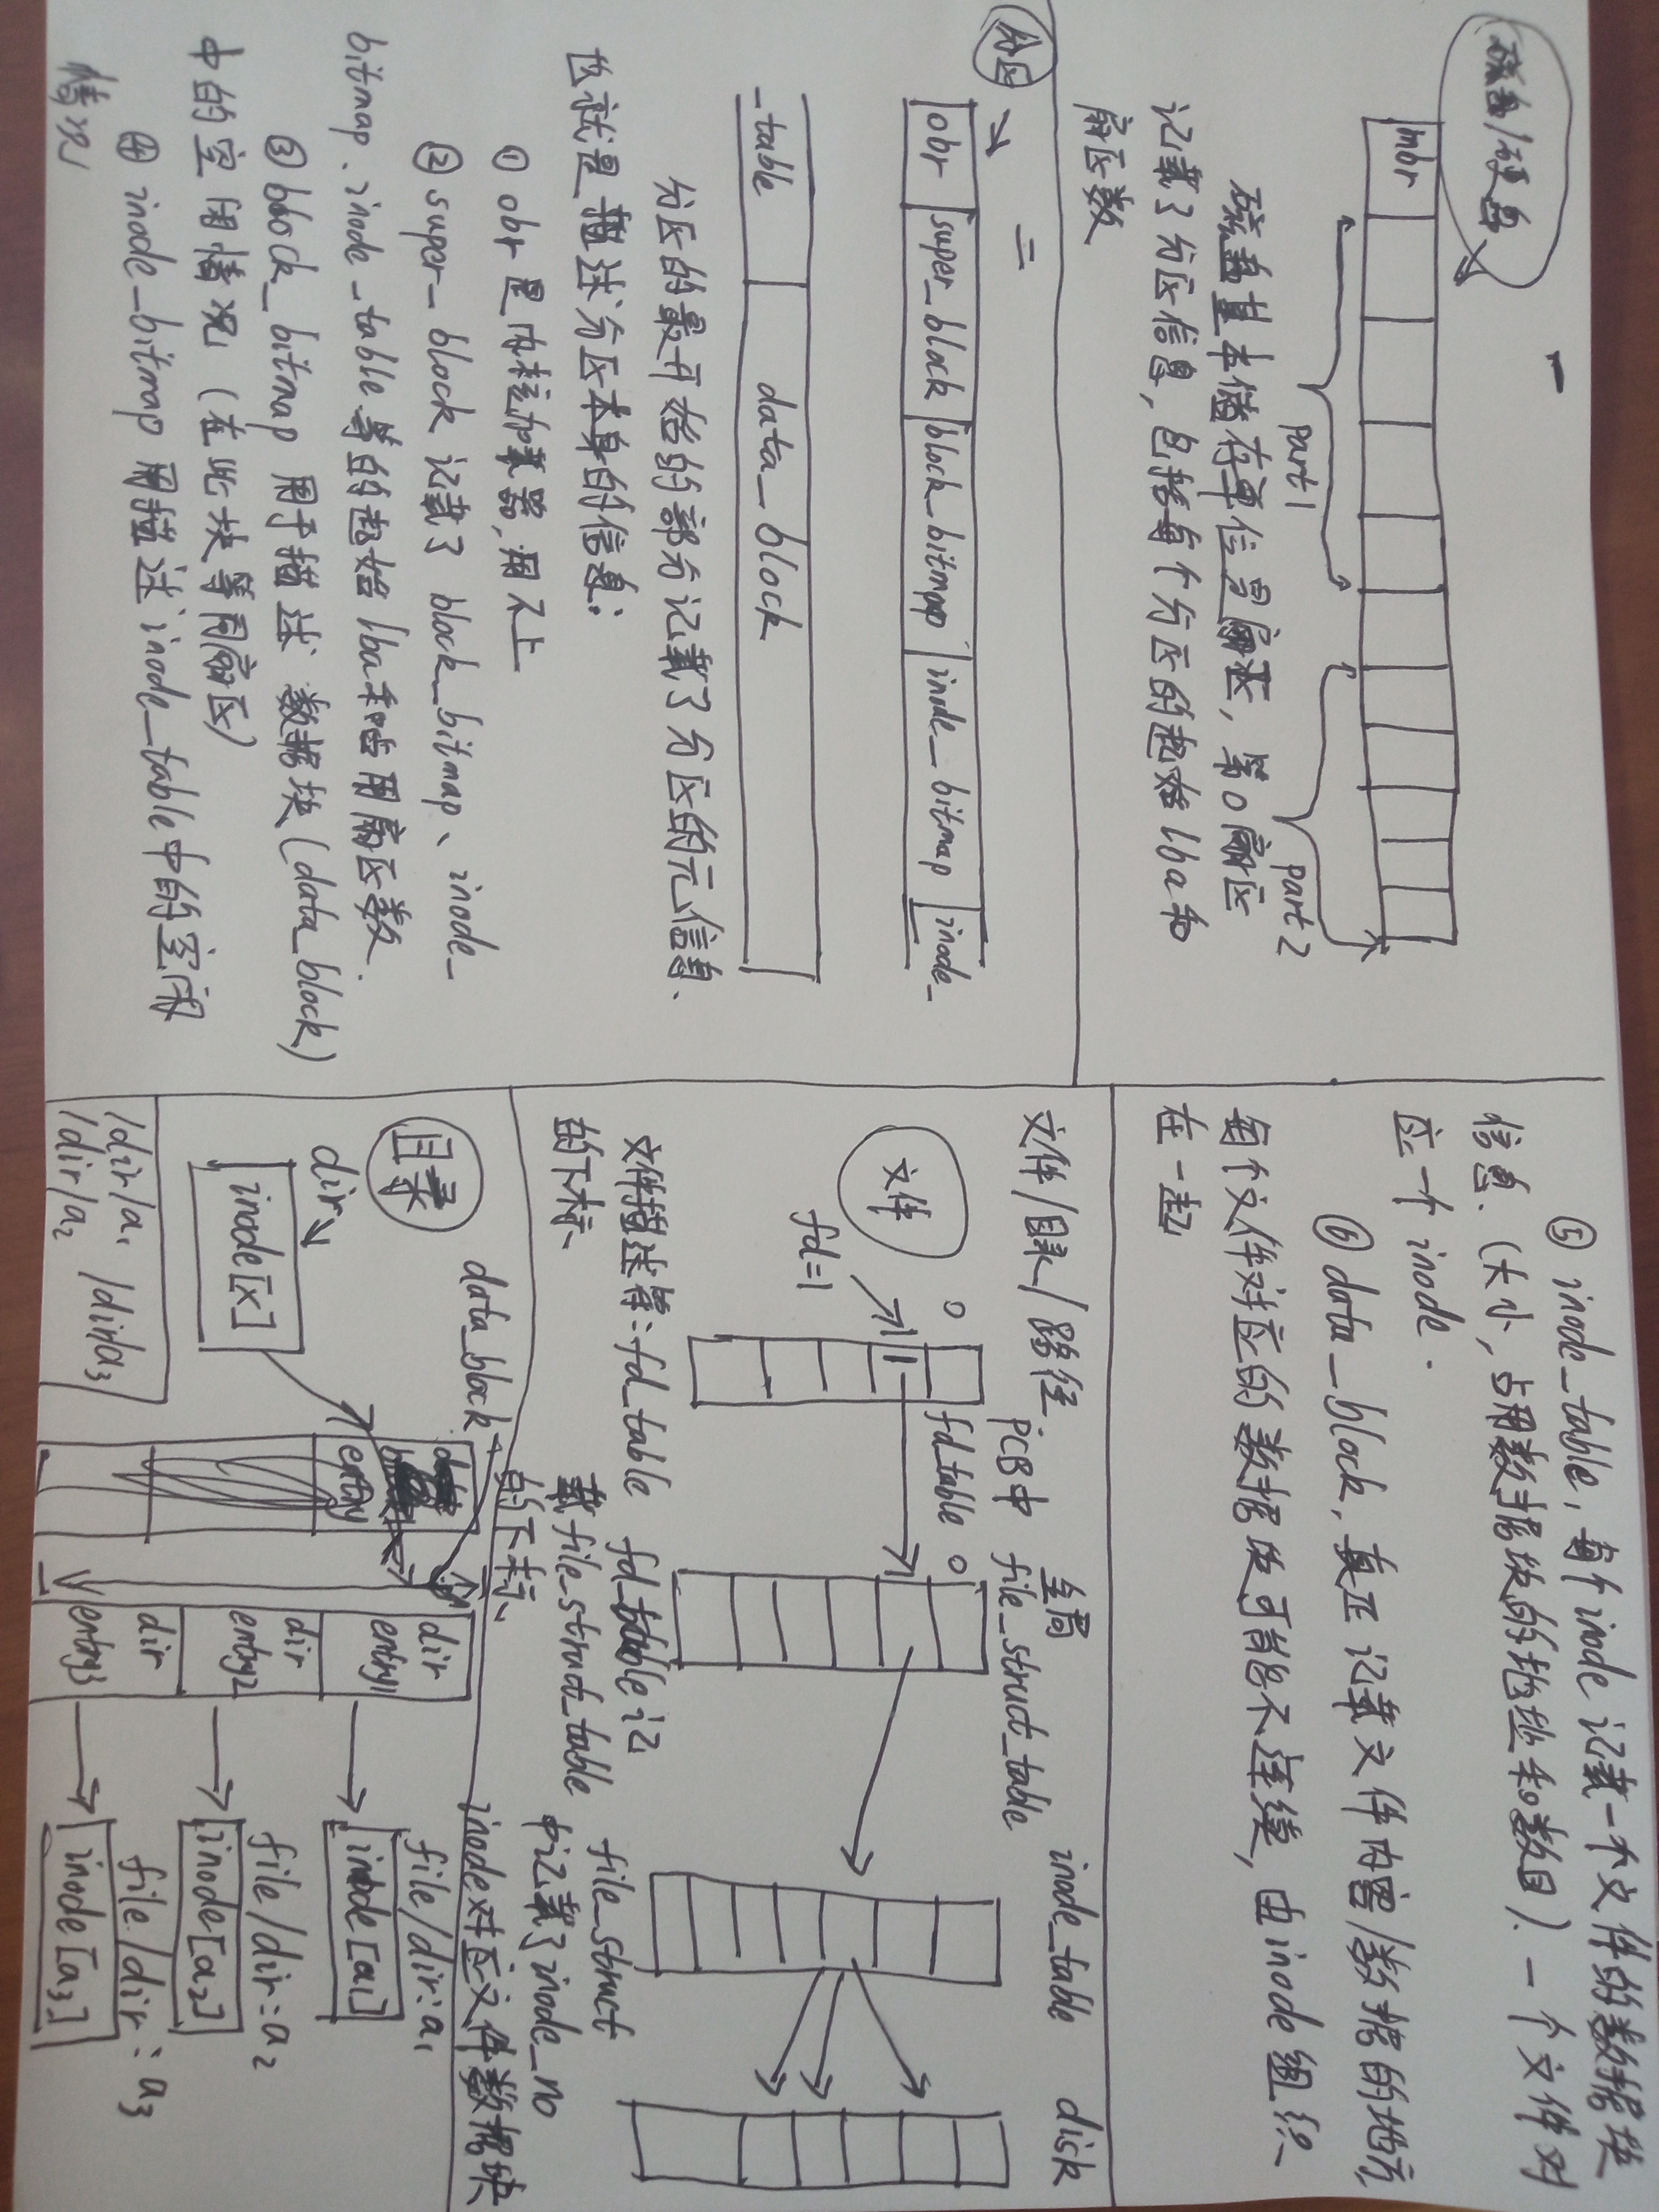 一
磁盘/硬盘
mbr
part1
part2
磁盘基本储存单位是扇区, 第0扇区
记载了分区信息, 包括每个分区的起始lba和
扇区数
二
分区
obr super_block block_bitmap inode_bitmap inode_
_table data_block
分区的最开始的部分记载了分区的元信息.
也就是描述分区本身的信息:
① obr 是内核加载器, 用不上
② super_block 记载了 block_bitmap、inode_
bitmap、inode_table 等的起始lba和占用扇区数.
③ block_bitmap 用于描述 数据块(data_block)
中的空闲情况 (在此块等同扇区)
④ inode_bitmap 用描述inode_table中的空闲
情况
⑤ inode_table, 每个inode 记载一个文件的数据块
信息. (大小, 占用数据块的地址和数目). 一个文件对
应一个 inode.
⑥ data_block, 真正记载文件内容/数据的地方,
每个文件对应的数据块可能不连续, 由inode组织
在一起
文件/目录/路径.
PCB中
fd_table
全局
file_struct_table
inode_table
disk
文件
0
1
1
0
1
fd=1
文件描述符: fd_table
的下标、
fd_table记
载file_struct_table
的下标、
file_struct
中记载了inode_no
inode对应文件数据块
目录
data_block
dir
inode[x]
entry
dir
entry1
dir
entry2
dir
entry3
file/dir: a1
inode[a1]
file/dir: a2
inode[a2]
file/dir: a3
inode[a3]
/dir/a1 /dir/a3
/dir/a2